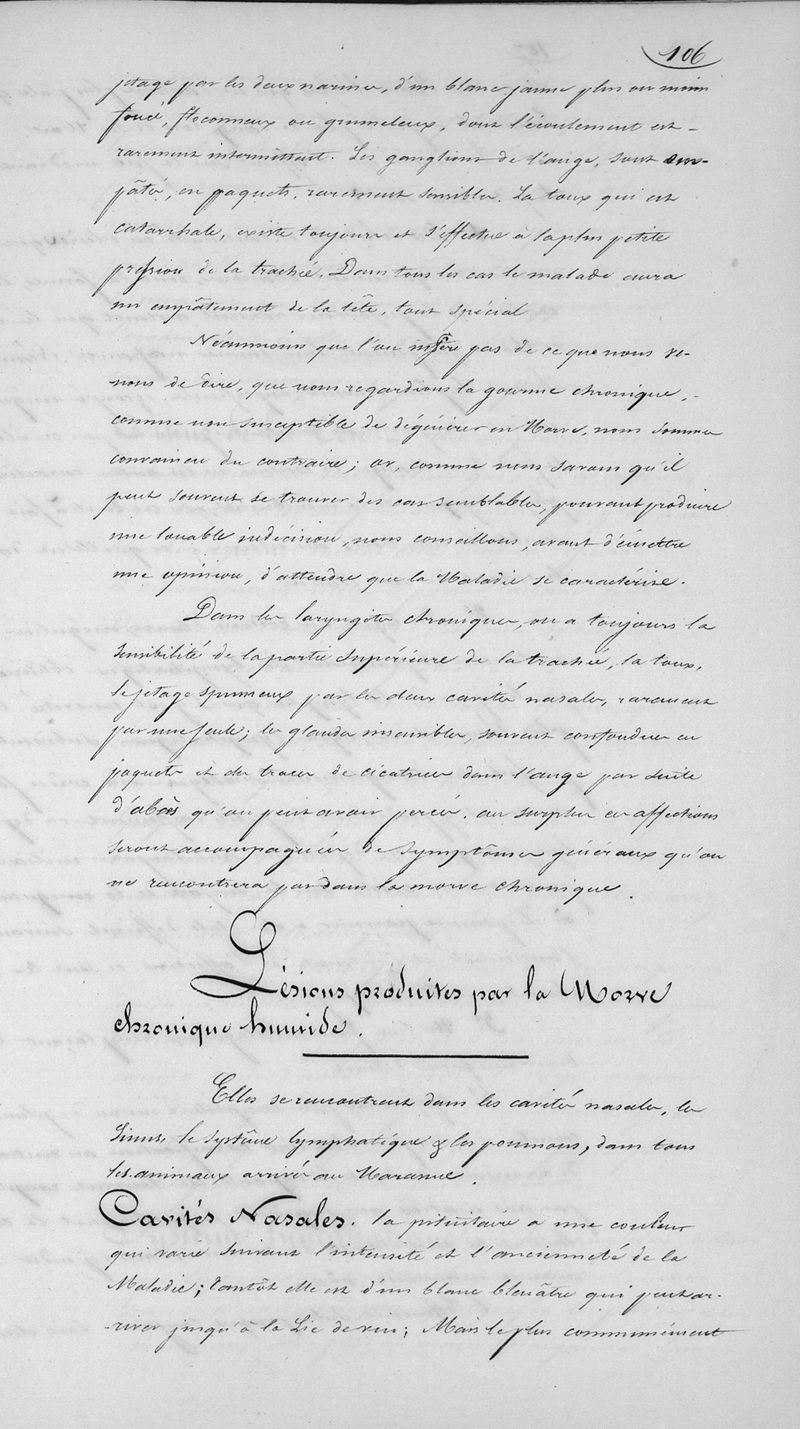 106
jetage par les deux narines, d'un blanc jaune plus ou moins
foncé, floconneux ou grumeleux, dont l'écoulement est
rarement intermittent. Les ganglions de l'auge, sont em-
pâtés, en paquets, rarement sensibles. La toux qui est
catarrhale, existe toujours et s'effectue à la plus petite
pression de la trachée. Dans tous les cas le malade aura
un empâtement de la tête, tout spécial
Néanmoins que l'on infère pas de ce que nous ve-
nons de dire, que nous regardions la gourme chronique,
comme non susceptible de dégénérer en Morve, nous sommes
convaincu du contraire; or, comme nous savons qu'il
peut souvent se trouver des cas semblables, pouvant produire
une louable indécision, nous conseillons, avant d'émettre
une opinion, d'attendre que la Maladie se caractérise.
Dans les laryngites chroniques, on a toujours la
sensibilité de la partie supérieure de la trachée, la toux,
le jetage spumeux par les deux cavités nasales, rarement
par une seule; les glandes insensibles, souvent confondues en
paquets et des traces de cicatrices dans l'auge par suite
d'abcès qu'on peut avoir percés. au surplus ces affections
seront accompagnées de symptômes généraux qu'on
ne rencontrera pas dans la morve chronique.
Lésions produites par la Morve
chronique humide.
Elles se rencontrent dans les cavités nasales, les
Sinus, le système lymphatique & les poumons, dans tous
les animaux arrivés au Marasme.
Cavités Nasales. la pituitaire a une couleur
qui varie suivant l'intensité et l'ancienneté de la
Maladie; tantôt elle est d'un blanc bleuâtre qui peut ar-
-river jusqu'à la Lie de vin; Mais le plus communément